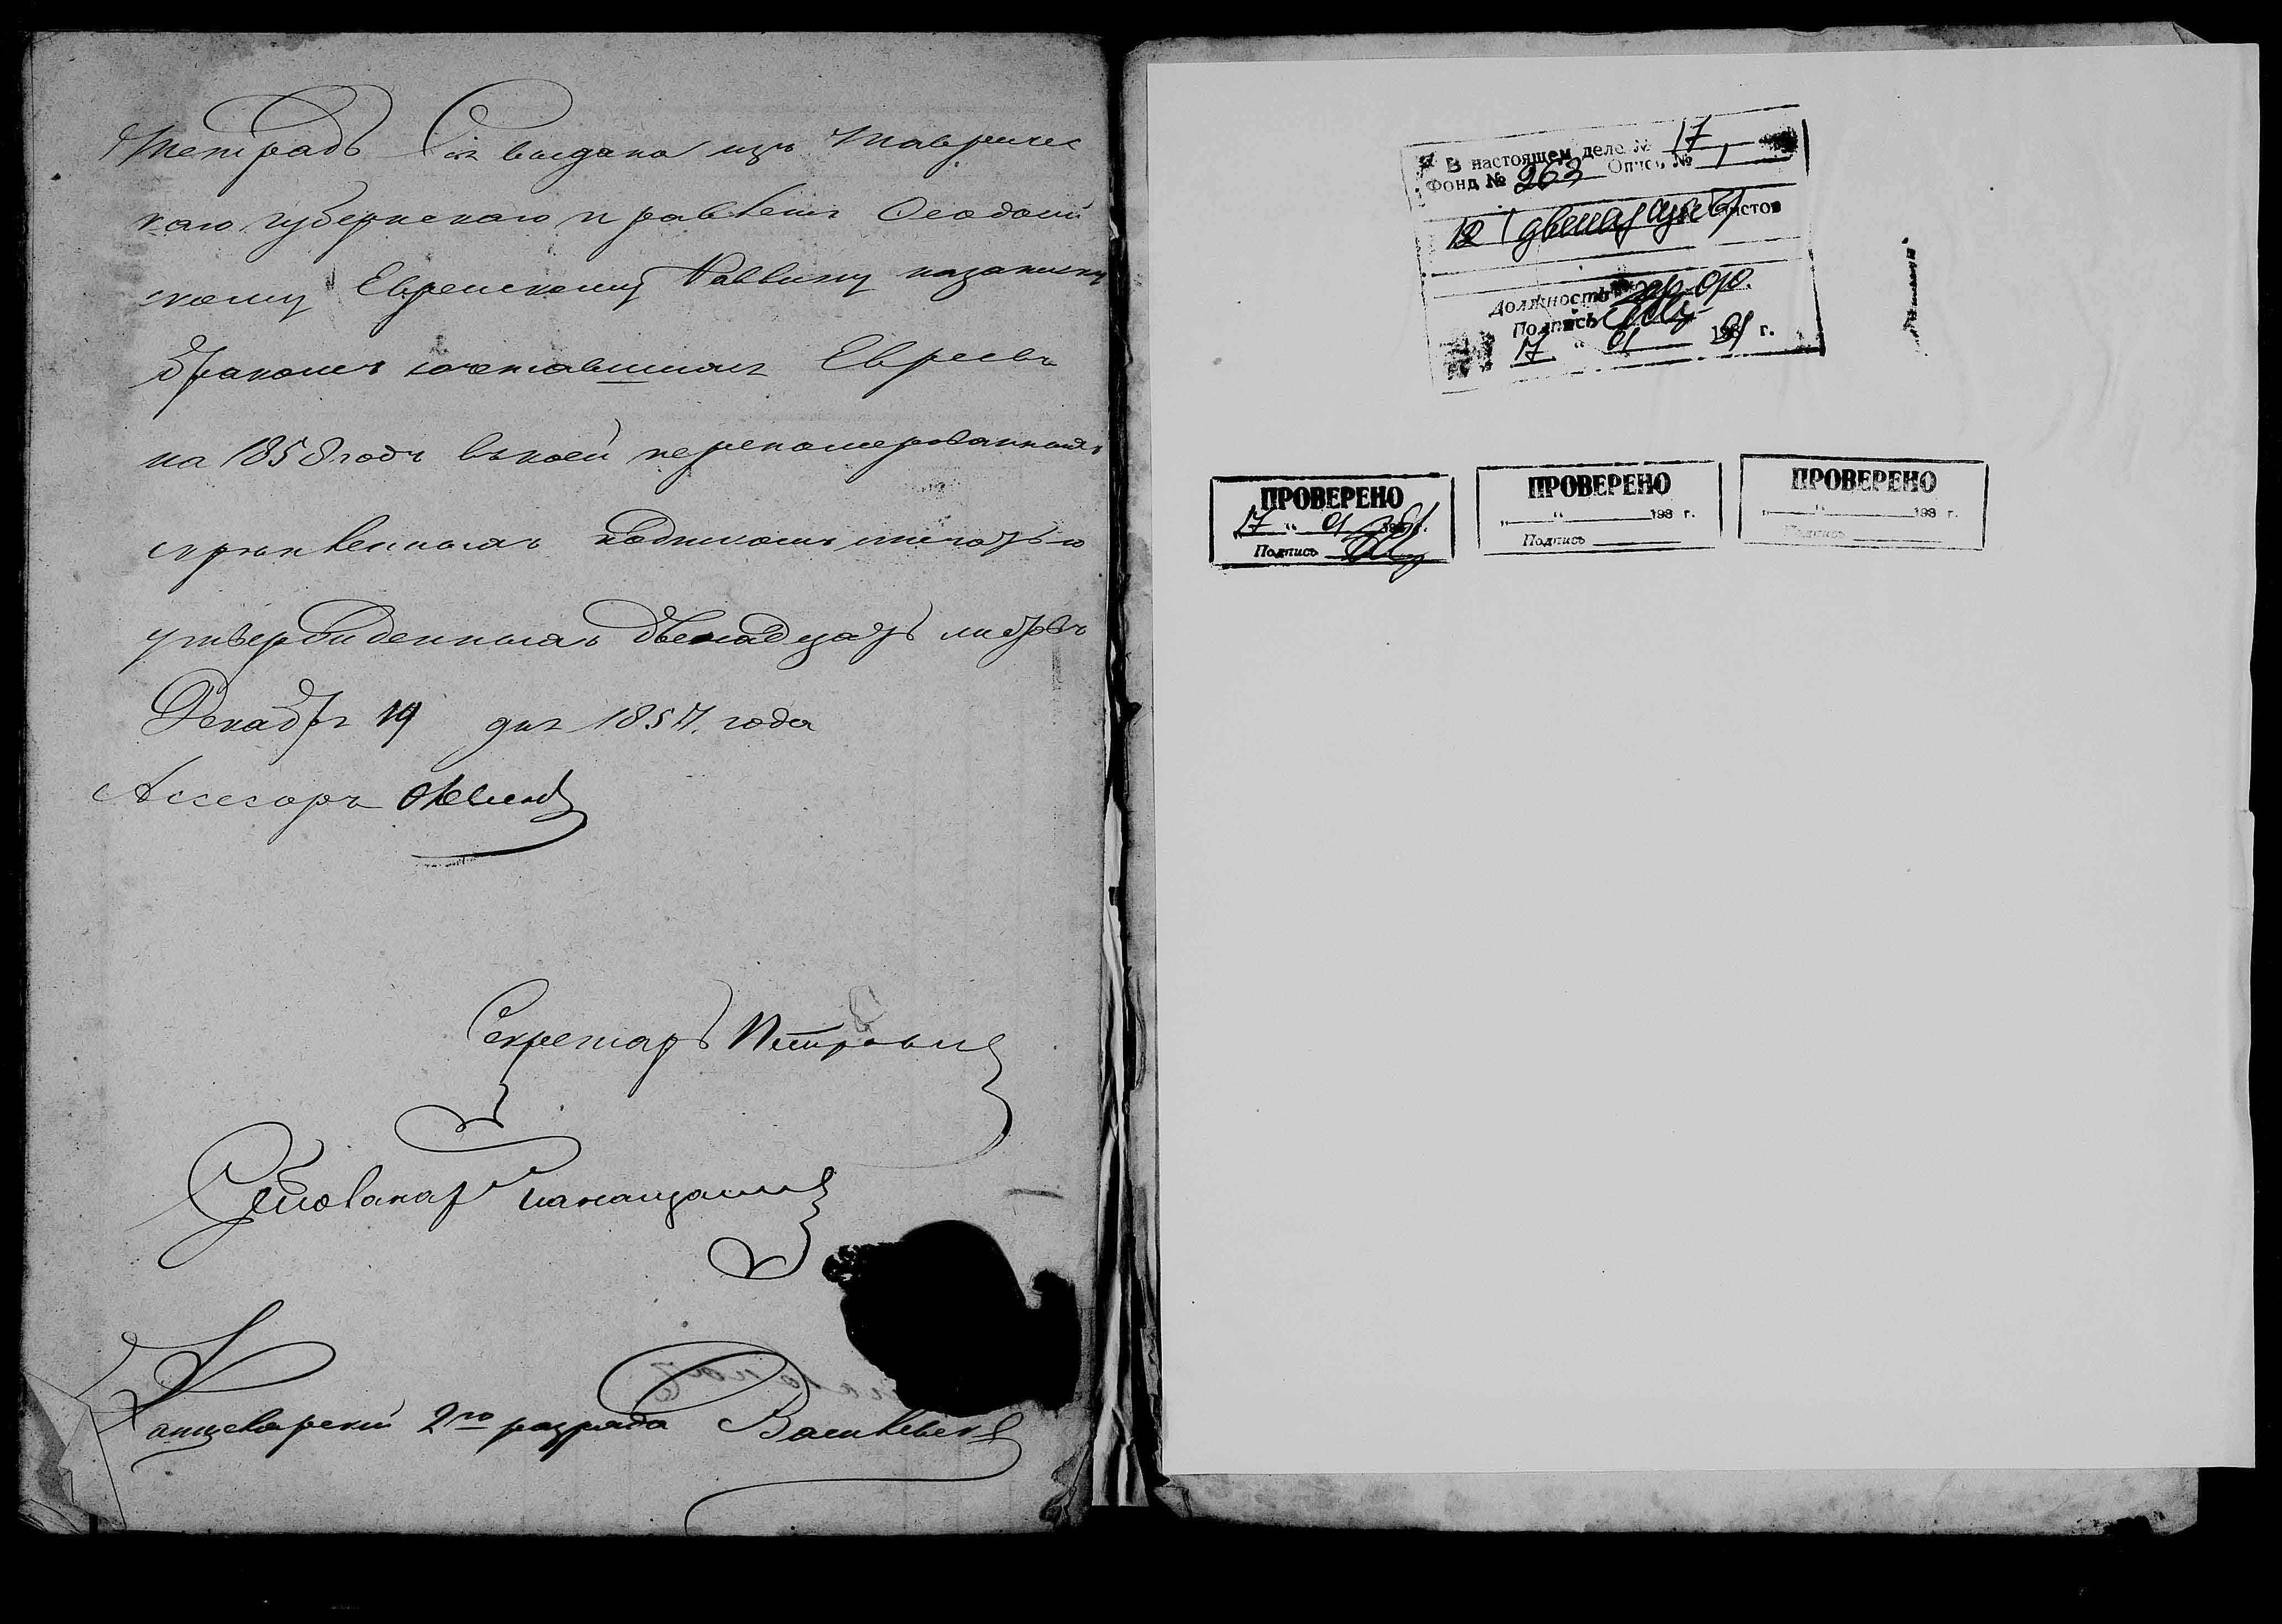 Тетрадь Сія выдана изъ Тавричес
каго губернскаго правленія Ѳеодосій
скому Еврейскому Раввину на записку
бракомъ сочетавшихся Евреевъ
на 1858 годъ въ коей переномерованныхъ
скрѣпленныхъ подписомъ и печатью
утвержденныхъ двенадцать листовъ
Декабря 19 дня 1857 года
Асессоръ
Секретарь
Канцелярский 2го разряда
В настоящем деле № 17
Фонд № 263 Опись № 1
12 (двенадцать) листов
Должность
Подпись
17 " 01 1981 г.
ПРОВЕРЕНО
17 " 01 1981 г.
Подпись
ПРОВЕРЕНО
" " 198 г.
Подпись
ПРОВЕРЕНО
" " 198 г.
Подпись